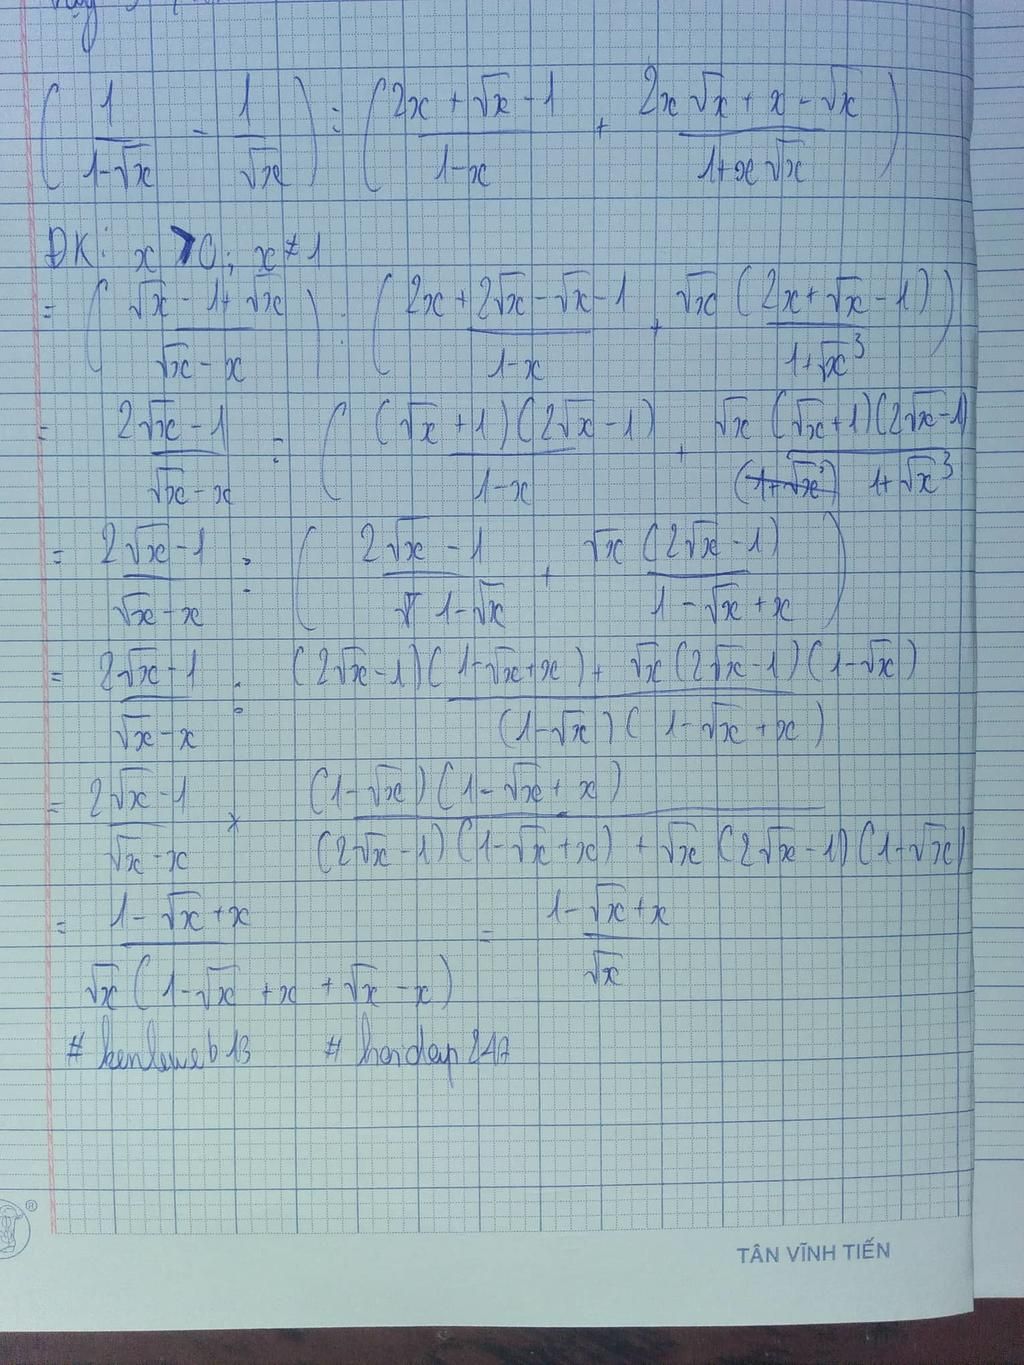 ( 1/(1-√x) - 1/√x ) : ( (2x + √x - 1)/(1-x) + (2x√x + x - √x)/(1+x√x) )
ĐK: x > 0; x ≠ 1
= ( (√x - 1 + √x)/(√x - x) ) : ( (2x + 2√x - √x - 1)/(1-x) + √x (2x + √x - 1)/(1+√x³) )
= (2√x - 1)/(√x - x) : ( (√x + 1)(2√x - 1)/(1-x) + √x (√x + 1)(2√x - 1)/(1+√x³)
= (2√x - 1)/(√x - x) : ( (2√x - 1)/(1-√x) + √x (2√x - 1)/(1 - √x + x) )
= (2√x - 1)/(√x - x) : ((2√x - 1)(1-√x+x) + √x (2√x - 1)(1-√x))/((1-√x)(1-√x + x))
= (2√x - 1)/(√x - x) × ((1-√x)(1-√x + x))/((2√x - 1)(1-√x+x) + √x (2√x - 1)(1-√x))
= (1-√x + x)/(√x (1-√x + x + √x - x)) = (1-√x + x)/√x
# hoidap247
®
TÂN VĨNH TIẾN